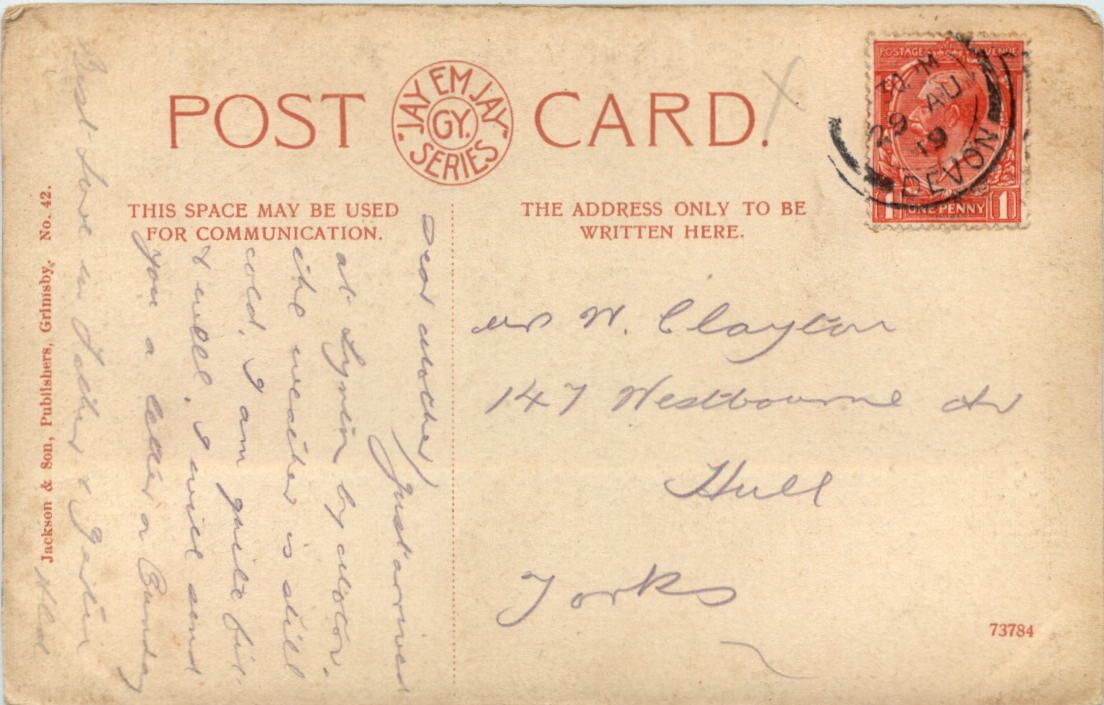 POST CARD.
"JAY EM JAY" GY. SERIES
POSTAGE REVENUE
29 AU 19
DEVON
1 ONE PENNY 1
THIS SPACE MAY BE USED
FOR COMMUNICATION.
THE ADDRESS ONLY TO BE
WRITTEN HERE.
Dear Mother, Just arrived
at Lynton by motor.
the weather is still
cold. I am quite fit
& well, I will send
you a letter on Sunday
Best love to Father &
Jackson & Son, Publishers, Grimsby. No. 42.
Mrs W. Clayton
147 Westbourne Av
Hull
Yorks
73784